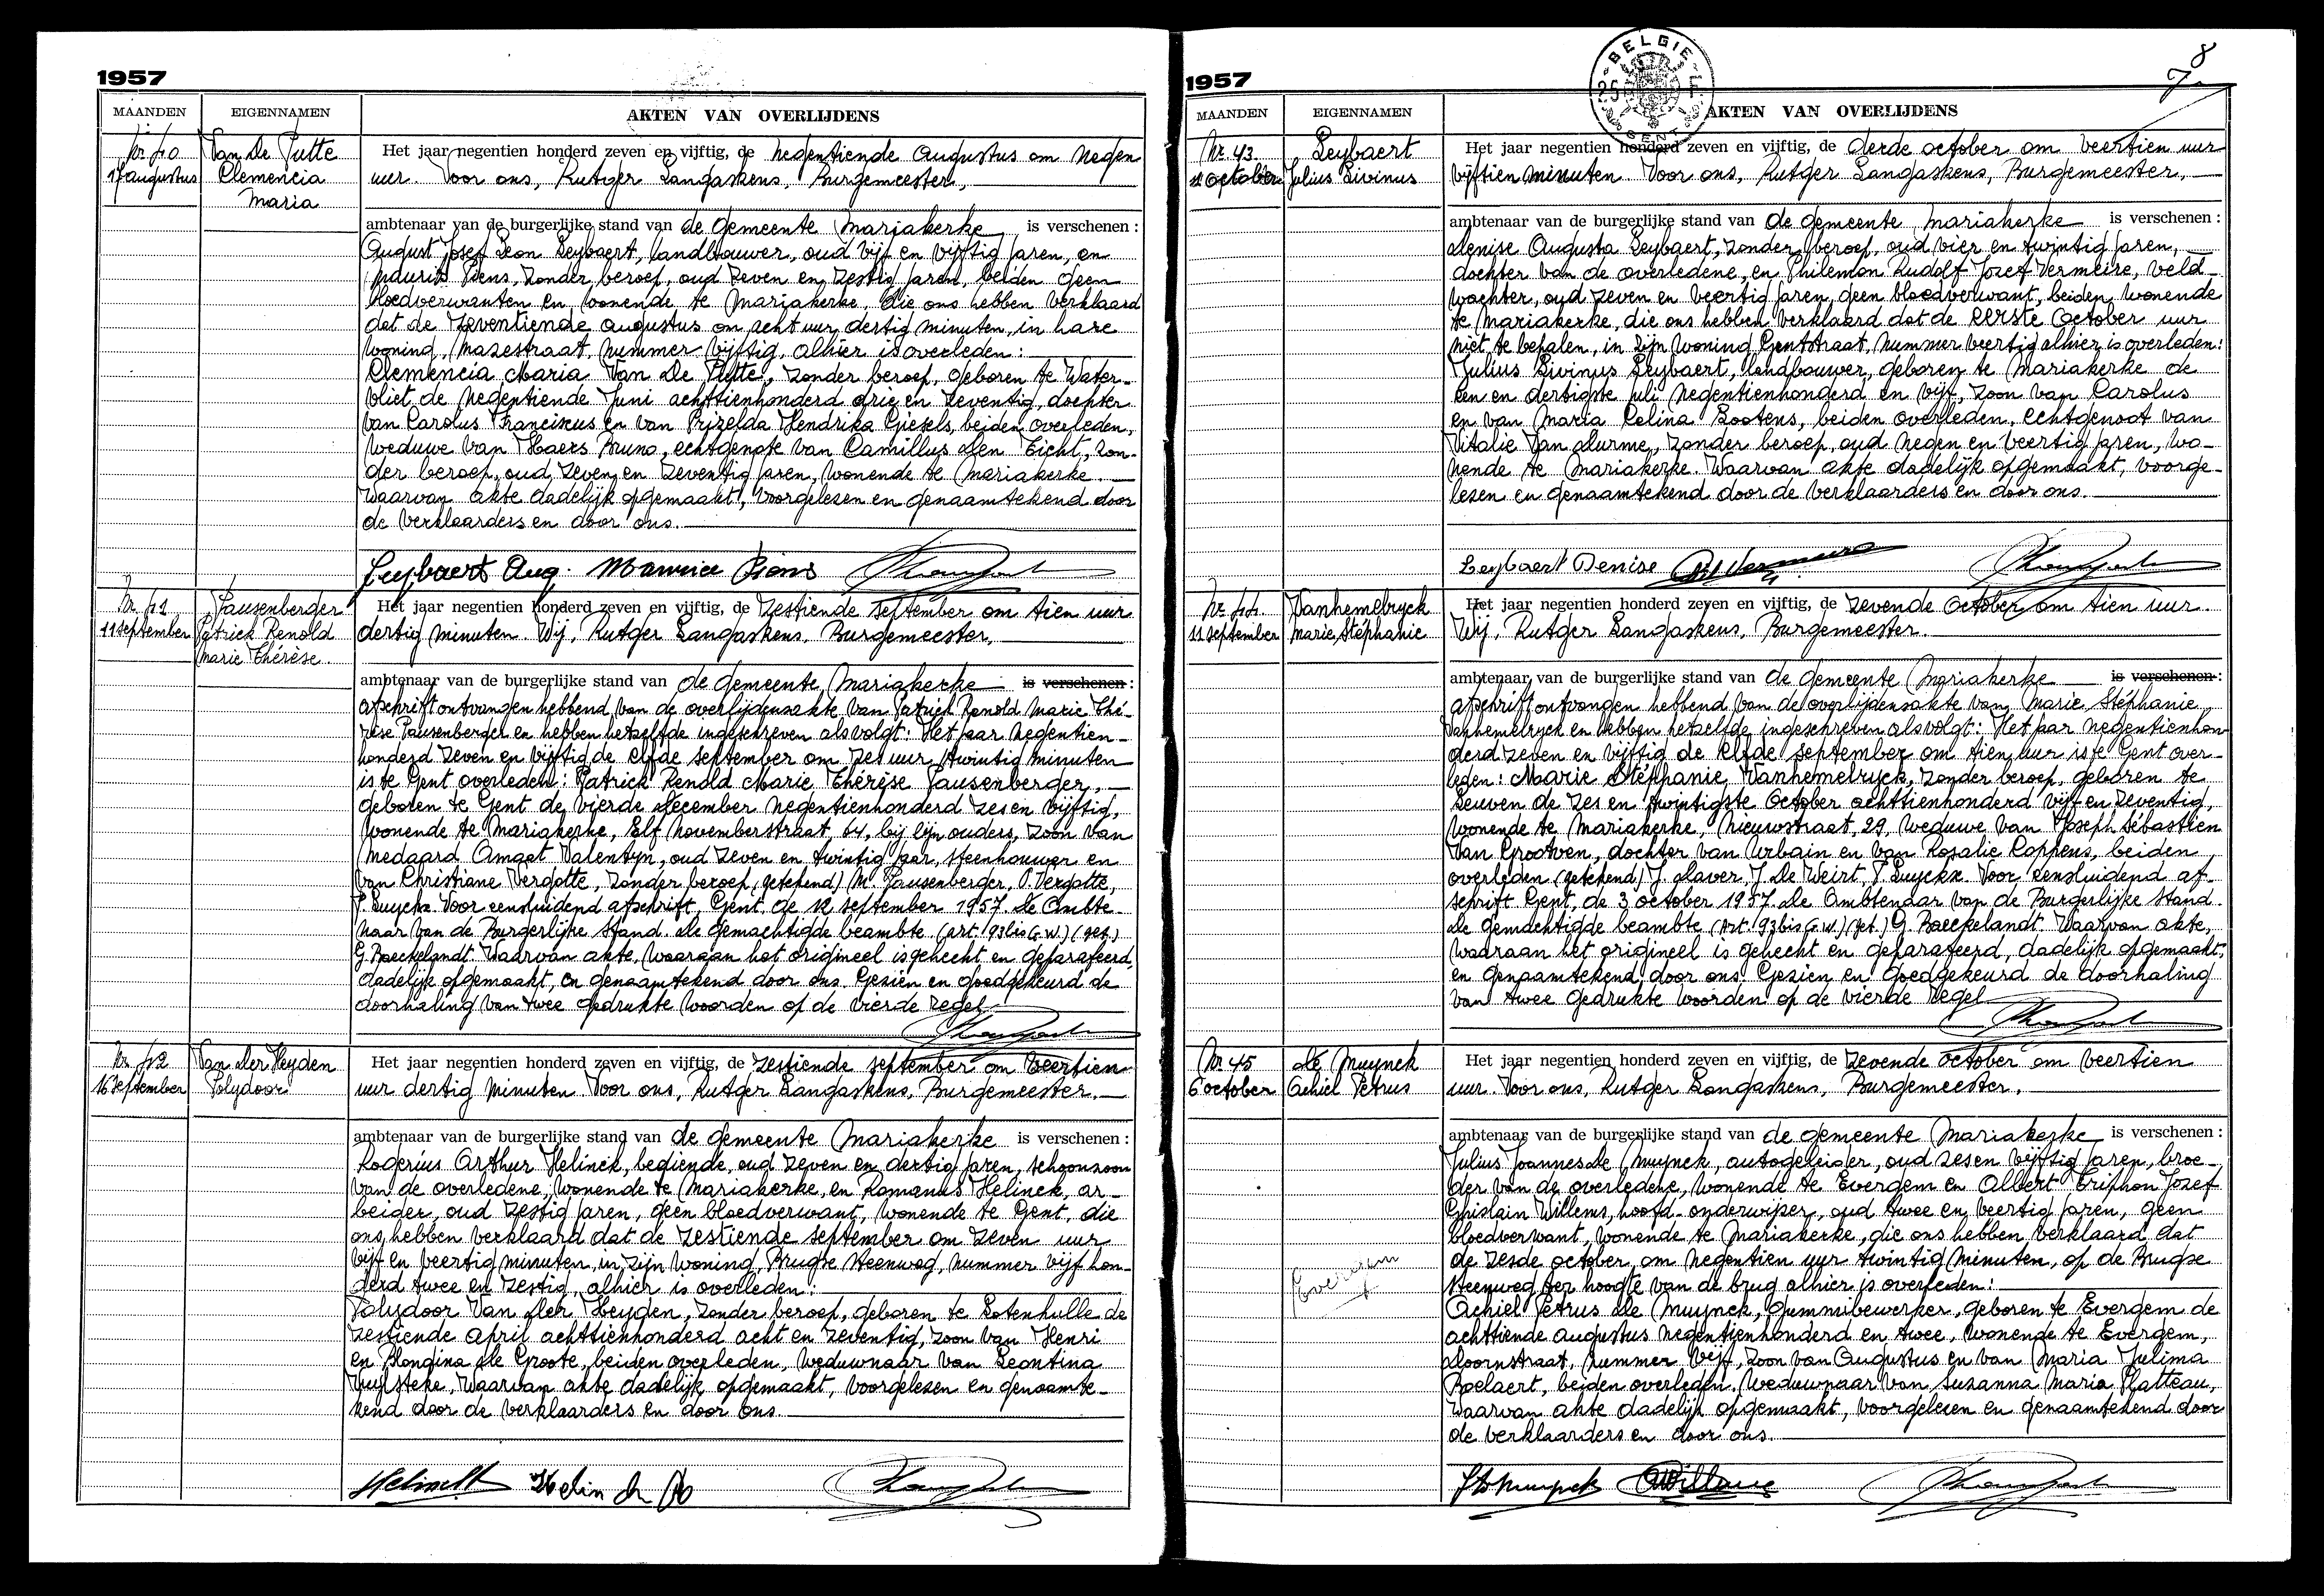 1957
MAANDEN EIGENNAMEN AKTEN VAN OVERLIJDENS
Nr 40
17 augustus
Van de Putte
Clemencia
Maria
Het jaar negentien honderd zeven en vijftig, de negentiende augustus om negen
uur. Voor ons, Rutger Langaskens, Burgemeester,
ambtenaar van de burgerlijke stand van de gemeente Mariakerke is verschenen :
August Josef Leon Leybaert, landbouwer, oud vijf en vijftig jaren, en
Maurits Piens, zonder beroep, oud zeven en zestig jaren, beiden geen
bloedverwanten en wonende te Mariakerke, die ons hebben verklaard
dat de zeventiende augustus om acht uur dertig minuten, in hare
woning, Mazestraat, nummer vijftig, alhier is overleden :
Clemencia Maria Van De Putte, zonder beroep, geboren te Water-
vliet de negentiende Juni achttienhonderd drie en zeventig, dochter
van Carolus Franciscus en van Prizelda Hendrika Giesels, beiden overleden,
weduwe van Haers Bruno, echtgenote van Camillus Den Eicht, zon-
der beroep, oud zeven en zeventig jaren, wonende te Mariakerke.
Waarvan akte dadelijk opgemaakt, voorgelesen en genaamtekend door
de verklaarders en door ons.
Leybaert Aug. Maurice Piens
Nr 41
11 september
Pausenberger
Patrick Renold
Marie Thérèse.
Het jaar negentien honderd zeven en vijftig, de zestiende september om tien uur
dertig minuten. Wij, Rutger Langaskens, Burgemeester,
ambtenaar van de burgerlijke stand van de gemeente Mariakerke is verschenen :
afschrift ontvangen hebbend van de overlijdensakte van Patrick Renold Marie Thé-
rèse Pausenberger en hebben hetzelfde ingeschreven als volgt : Het jaar negentien-
honderd zeven en vijftig de elfde september om zes uur twintig minuten
is te Gent overleden : Patrick Renold Marie Thérèse Pausenberger,
geboren te Gent de vierde december negentienhonderd zes en vijftig,
wonende te Mariakerke, Elf Novemberstraat, 64, bij zijn ouders, zoon van
Medaard Amaat Valentyn, oud zeven en twintig jaar, steenhouwer en
van Christiane Vergotte, zonder beroep, (getekend) M. Pausenberger, P. Vergotte,
P. Luyckx. Voor eensluidend afschrift, Gent, de 12 september 1957. De Ambte-
naar van de Burgerlijke Stand. De gemachtigde beambte (art. 93bis G.W.) (get.)
G. Baeckelandt. Waarvan akte, waaraan het origineel is gehecht en geparafeerd,
dadelijk opgemaakt, en genaamtekend door ons. Gezien en goedgekeurd de
doorhaling van twee gedrukte woorden op de vierde regel.
Nr 42
16 september
Van der Heyden
Polydoor
Het jaar negentien honderd zeven en vijftig, de zestiende september om veertien
uur dertig minuten. Voor ons, Rutger Langaskens, Burgemeester.
ambtenaar van de burgerlijke stand van de gemeente Mariakerke is verschenen :
Rogerius Arthur Helinck, bediende, oud zeven en dertig jaren, schoonzoon
van de overledene, wonende te Mariakerke, en Romanus Helinck, ar-
beider, oud zestig jaren, geen bloedverwant, wonende te Gent, die
ons hebben verklaard dat de zestiende september om zeven uur
vijf en veertig minuten, in zijn woning, Brugse steenweg, nummer vijf hon-
derd twee en zestig, alhier is overleden :
Polydoor Van der Heyden, zonder beroep, geboren te Lotenhulle de
zestiende april achttienhonderd acht en zeventig, zoon van Henri
en Blondina De Groote, beiden overleden, weduwnaar van Leontina
Vuylsteke, Waarvan akte dadelijk opgemaakt, voorgelesen en genaamte-
kend door de verklaarders en door ons.
Helinck Helinck
1957
8
BELGIE 25 F GENT
MAANDEN EIGENNAMEN AKTEN VAN OVERLIJDENS
Nr. 43
1 october
Leybaert
Julius Livinus
Het jaar negentien honderd zeven en vijftig, de derde october om veertien uur
vijftien minuten. Voor ons, Rutger Langaskens, Burgemeester,
ambtenaar van de burgerlijke stand van de gemeente Mariakerke is verschenen :
Denise Augusta Leybaert, zonder beroep, oud vier en twintig jaren,
dochter van de overledene, en Philemon Rudolf Jozef Vermeire, veld-
wachter, oud zeven en veertig jaren, geen bloedverwant, beiden wonende
te Mariakerke, die ons hebben verklaard dat de eerste october uur
niet te bepalen, in zijn woning Gentstraat, nummer veertig alhier is overleden :
Julius Livinus Leybaert, landbouwer, geboren te Mariakerke de
een en dertigste juli negentienhonderd en vijf, zoon van Carolus
en van Maria Celina Bootens, beiden overleden, echtgenoot van
Vitalie Van Durme, zonder beroep, oud negen en veertig jaren, wo-
nende te Mariakerke. Waarvan akte dadelijk opgemaakt, voorge-
lesen en genaamtekend door de verklaarders en door ons.
Leybaert Denise
Nr. 44.
11 september
Vanhemelryck
Marie Stéphanie
Het jaar negentien honderd zeven en vijftig, de zevende october om tien uur.
Wij, Rutger Langaskens, Burgemeester.
ambtenaar van de burgerlijke stand van de gemeente Mariakerke is verschenen :
afschrift ontvangen hebbend van de overlijdensakte van Marie Stéphanie
Vanhemelryck en hebben hetzelfde ingeschreven als volgt : Het jaar negentienhon-
derd zeven en vijftig de elfde september om tien uur is te Gent over-
leden : Marie Stéphanie Vanhemelryck, zonder beroep, geboren te
Leuven de zes en twintigste October achttienhonderd vijf en zeventig,
wonende te Mariakerke, Nieuwstraat, 29, weduwe van Joseph Sébastien
Van Grootven, dochter van Urbain en van Rosalie Coppens, beiden
overleden (getekend) J. Slaver, J. De Weirt, P. Luyckx. Voor eensluidend af-
schrift Gent, de 3 october 1957. De Ambtenaar van de Burgerlijke Stand.
De gemachtigde beambte (Art. 93bis G.W.) (get.) G. Baeckelandt. Waarvan akte,
waaraan het origineel is gehecht en geparafeerd, dadelijk opgemaakt,
en genaamtekend door ons. Gezien en goedgekeurd de doorhaling
van twee gedrukte woorden op de vierde regel
Nr 45
6 october
De Muynck
Achiel Petrus
Het jaar negentien honderd zeven en vijftig, de zevende october om veertien
uur. Voor ons, Rutger Langaskens, Burgemeester.
ambtenaar van de burgerlijke stand van de gemeente Mariakerke is verschenen :
Julius Joannes De Muynck, autogeleider, oud zes en vijftig jaren, broe-
der van de overledene, wonende te Evergem en Albert Triphon Jozef
Ghislain Willems, hoofd-onderwijzer, oud twee en veertig jaren, geen
bloedverwant, wonende te Mariakerke, die ons hebben verklaard dat
de zesde october om negentien uur twintig minuten, op de Brugse
steenweg ter hoogte van de brug alhier is overleden :
Evergem
Achiel Petrus De Muynck, gummibewerker, geboren te Evergem de
achttiende augustus negentienhonderd en twee, wonende te Evergem,
Doornstraat, nummer vijf, zoon van Augustus en van Maria Julima
Roelaert, beiden overleden, weduwnaar van Suzanna Maria Platteau,
Waarvan akte dadelijk opgemaakt, voorgelesen en genaamtekend door
de verklaarders en door ons.
J De Muynck AWillems